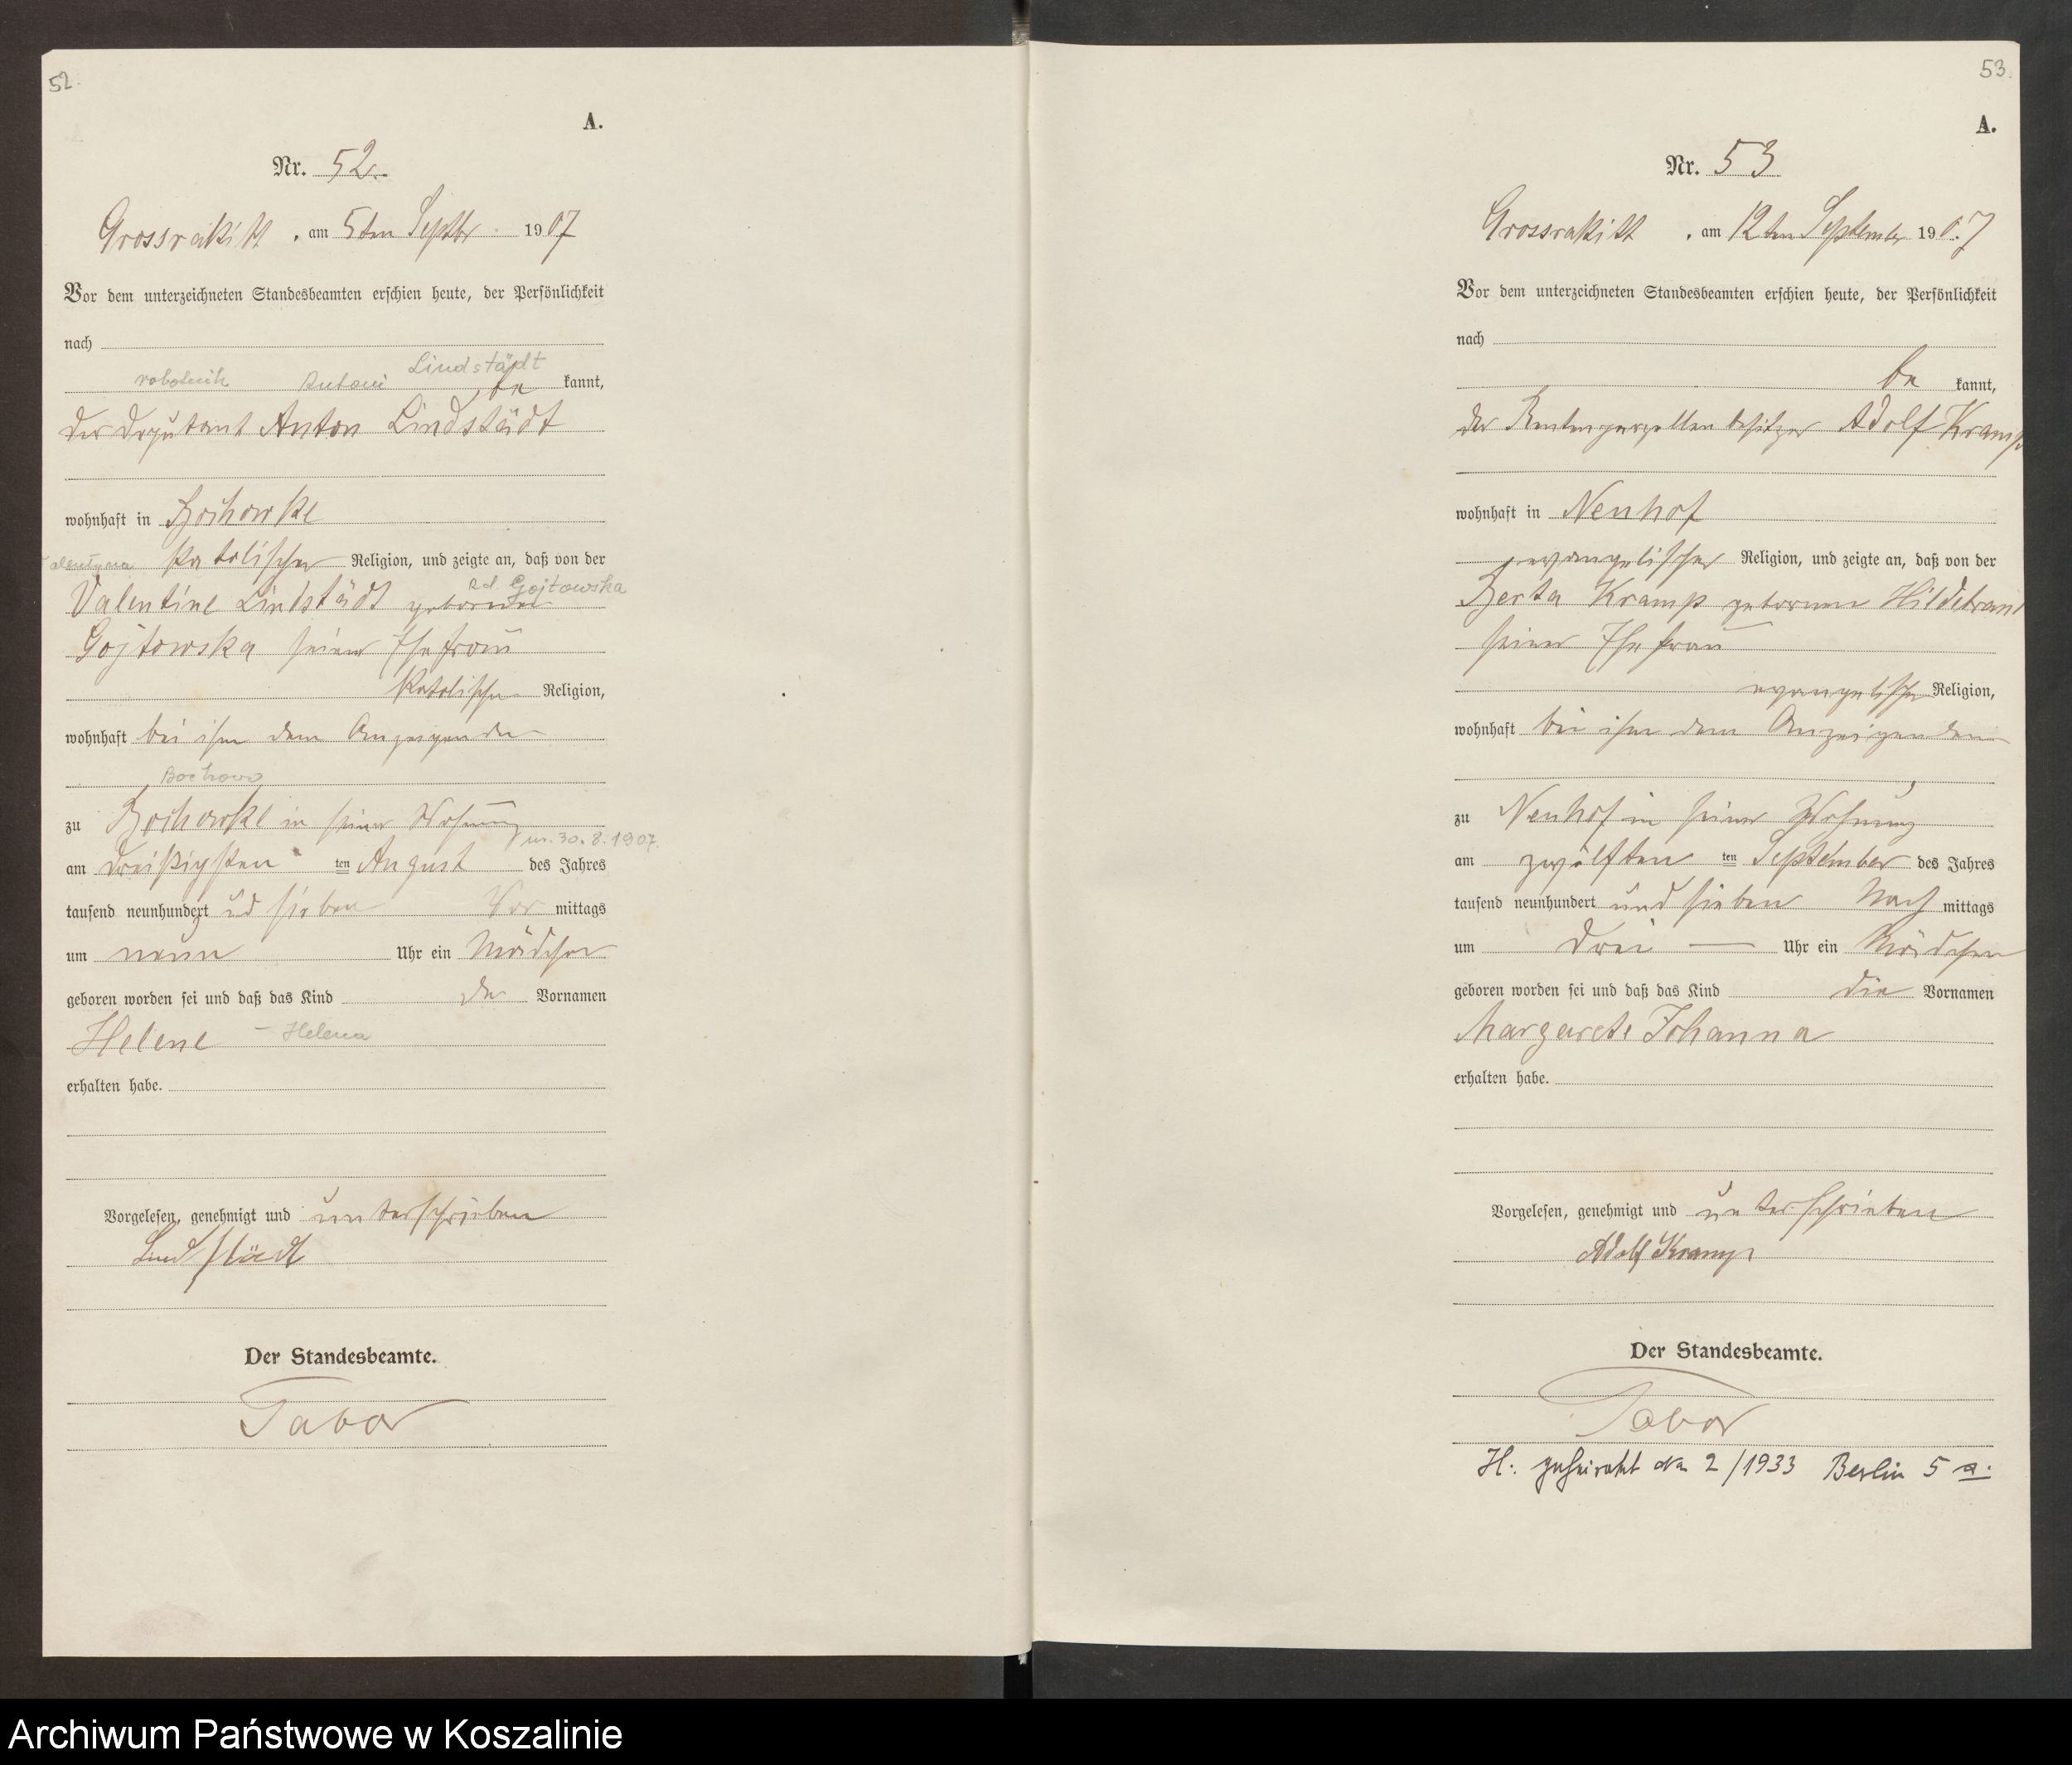 52.
A.
Nr. 52.
Grossrakitt, am 5ten Septbr. 1907
Vor dem unterzeichneten Standesbeamten erschien heute, der Persönlichkeit
nach
robotnik Antoni Lindstädt
be kannt,
der Deputant Anton Lindstädt
wohnhaft in Bochowke
katolischer Religion, und zeigte an, daß von der
zd Gojtowska
Valentine Lindstädt geborene
Gojtowska seiner Ehefrau
katolischer Religion,
wohnhaft bei ihm dem Anzeigenden
Bochowo
zu Bochowke in seiner Wohnung
ur. 30.8.1907.
am dreißigsten ten August des Jahres
tausend neunhundert und sieben Vor mittags
um neun Uhr ein Mädchen
geboren worden sei und daß das Kind den Vornamen
Helene – Helena
erhalten habe.
Vorgelesen, genehmigt und unterschrieben
Lindstädt
Der Standesbeamte.
Tabor
53.
A.
Nr. 53
Grossrakitt, am 12ten September 1907
Vor dem unterzeichneten Standesbeamten erschien heute, der Persönlichkeit
nach
be kannt,
der Rentenparzellenbesitzer Adolf Kramp
wohnhaft in Neuhof
evangelischer Religion, und zeigte an, daß von der
Berta Kramp geborenen Hildebrand
seiner Ehefrau
evangelischer Religion,
wohnhaft bei ihm dem Anzeigenden
zu Neuhof in seiner Wohnung
am zwölften ten September des Jahres
tausend neunhundert und sieben Nach mittags
um drei — Uhr ein Mädchen
geboren worden sei und daß das Kind die Vornamen
Margarete Johanna
erhalten habe.
Vorgelesen, genehmigt und unterschrieben
Adolf Kramp
Der Standesbeamte.
Tabor
H: geheiratet 2/1933 Berlin 5 a.
Archiwum Państwowe w Koszalinie